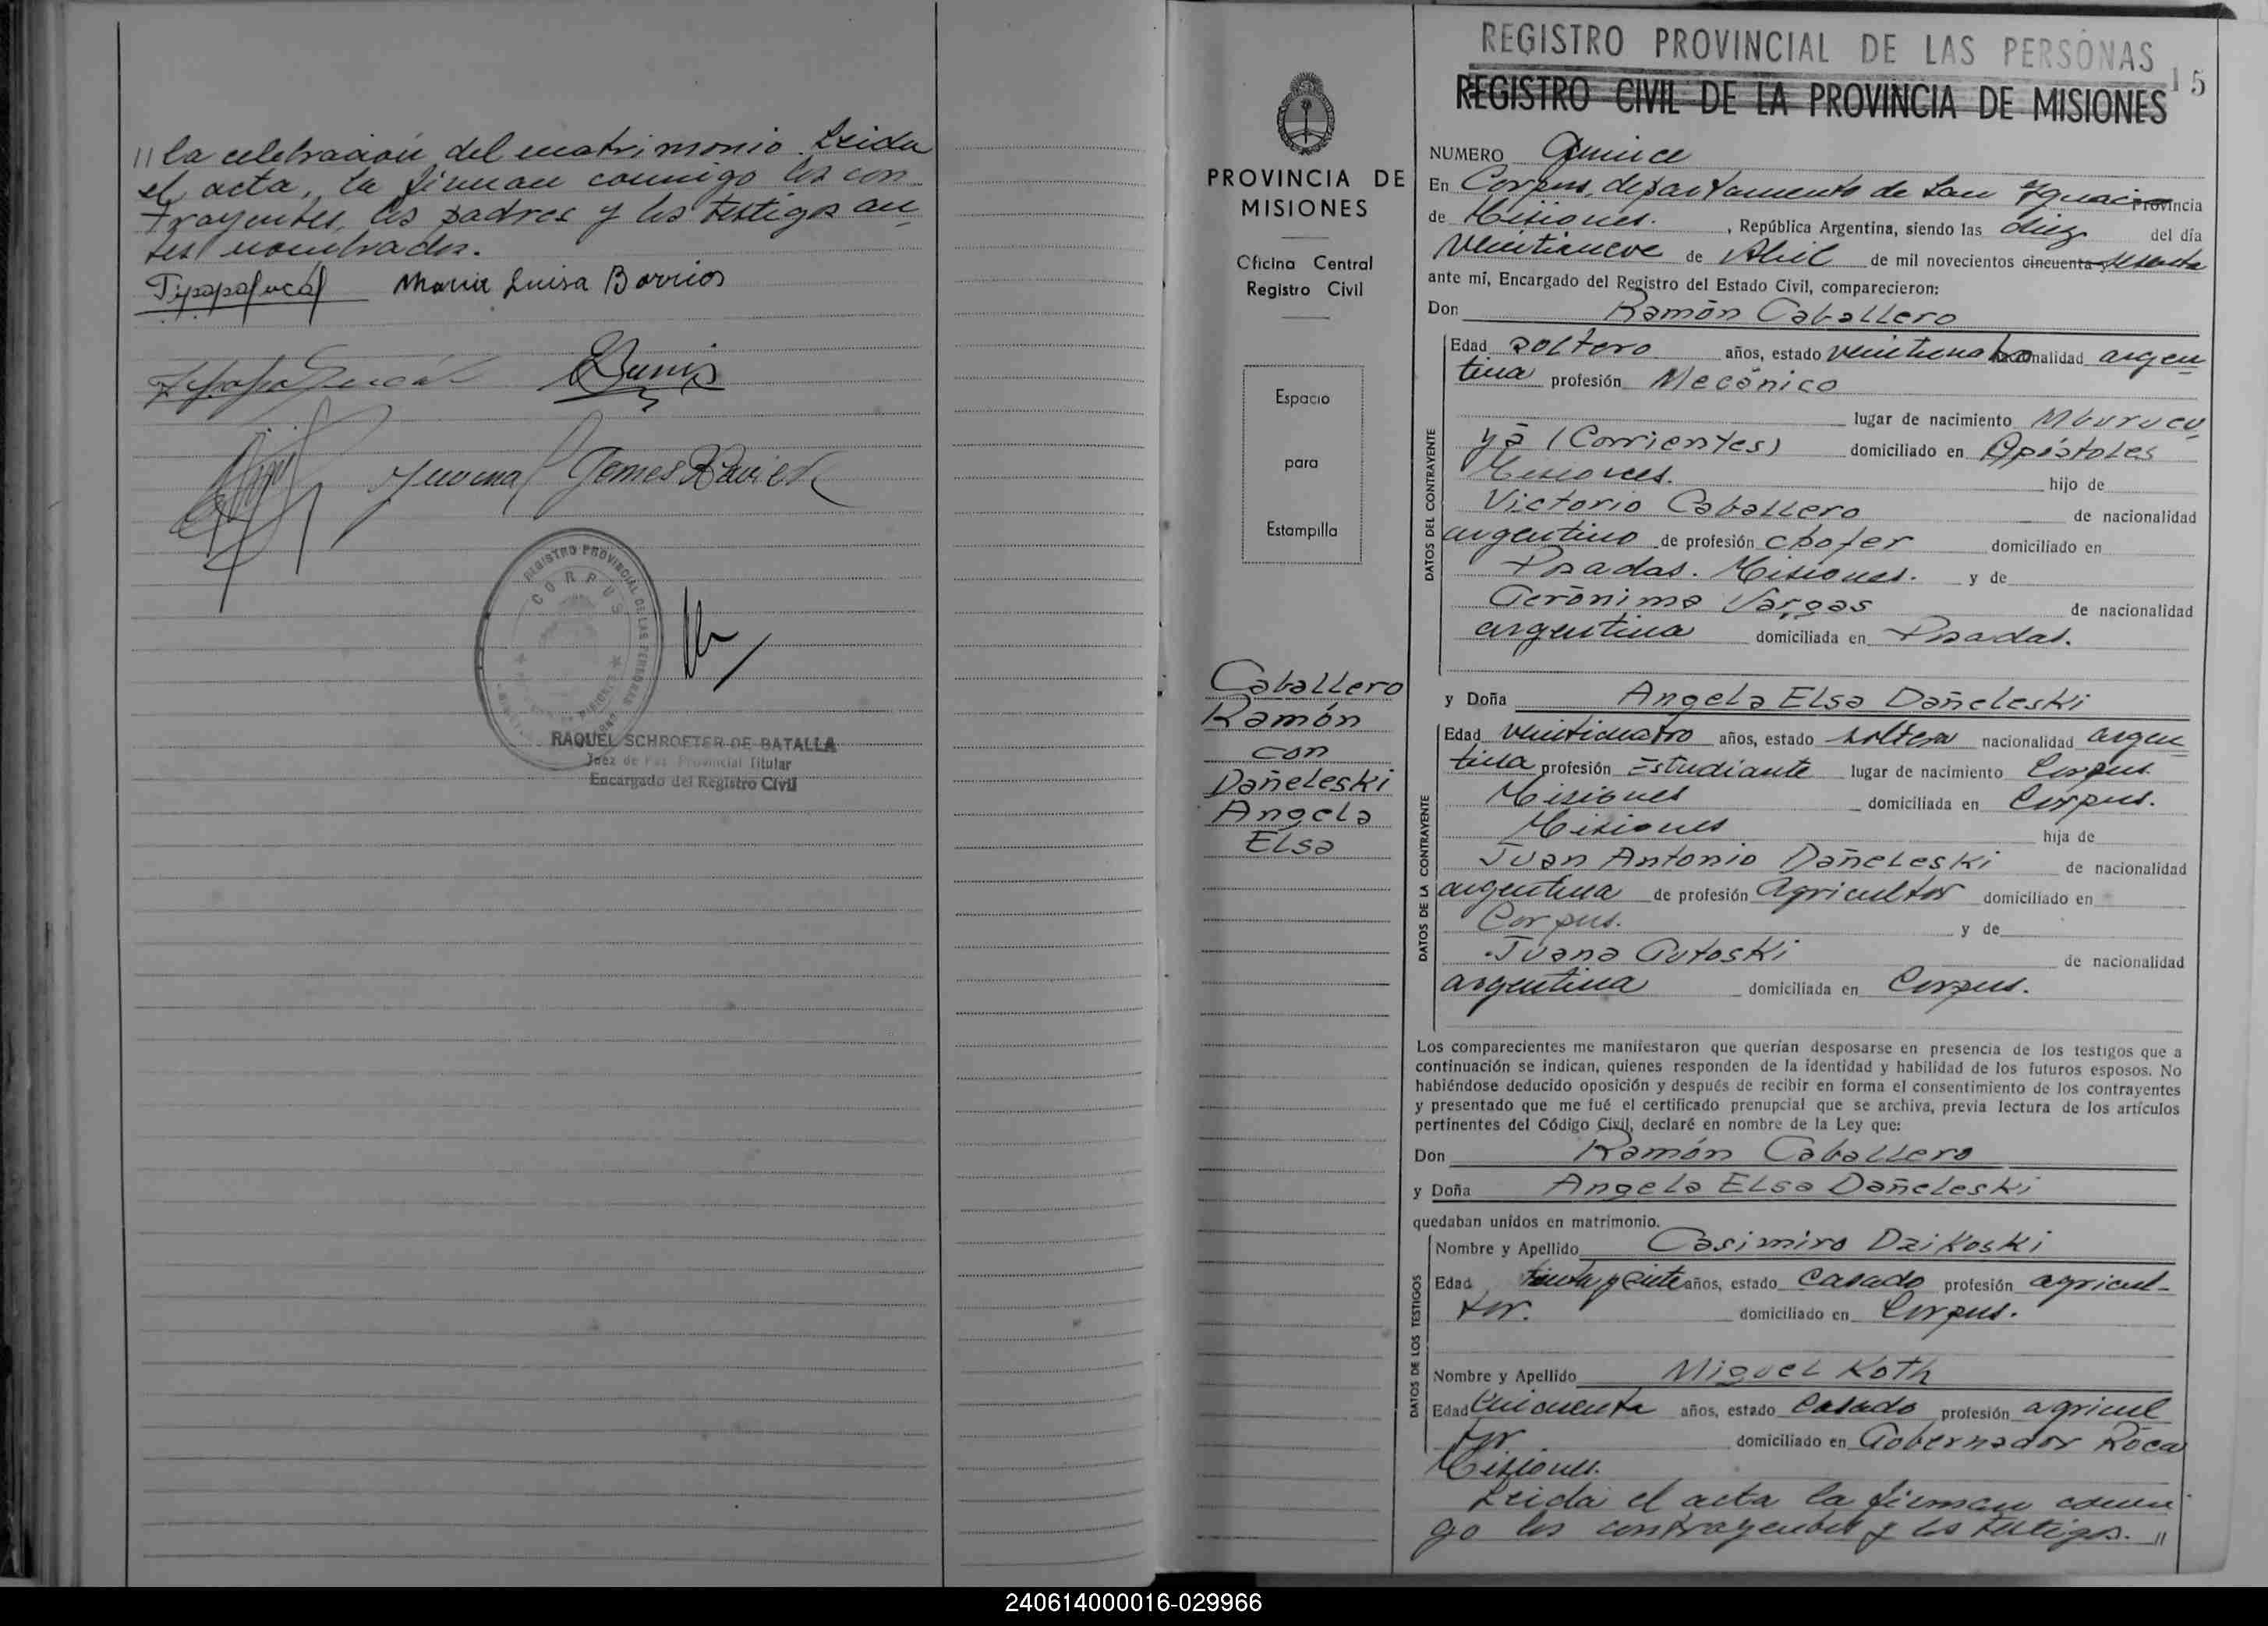 // la celebración del matrimonio. Leida
el acta, la firman conmigo los con-
trayentes, los padres y los testigos an-
tes nombrados.
Maria Luisa Barrios
REGISTRO PROVINCIAL DE LAS PERSONAS
CORPUS
MISIONES
RAQUEL SCHROETER DE BATALLA
Juez de Paz Provincial Titular
Encargado del Registro Civil
PROVINCIA DE
MISIONES
Oficina Central
Registro Civil
Espacio
para
Estampilla
Caballero
Ramón
con
Dañeleski
Angela
Elsa
REGISTRO PROVINCIAL DE LAS PERSONAS
REGISTRO CIVIL DE LA PROVINCIA DE MISIONES
15
NUMERO Quince
En Corpus, departamento de San Ignacio Provincia
de Misiones. , República Argentina, siendo las diez del día
veintinueve de Abril de mil novecientos cincuenta sesenta
ante mí, Encargado del Registro del Estado Civil, comparecieron:
Don Ramón Caballero
Edad soltero años, estado nacionalidad argen-
tina profesión Mecánico
lugar de nacimiento Mburucu-
yá (Corrientes) domiciliado en Apóstoles
Misiones. hijo de
Victorio Caballero de nacionalidad
argentino de profesión chofer domiciliado en
Posadas. Misiones. y de
Gerónima Vargas de nacionalidad
argentina domiciliada en Posadas.
DATOS DEL CONTRAYENTE
y Doña Angela Elsa Dañeleski
Edad veinticuatro años, estado soltera nacionalidad argen
tina profesión Estudiante lugar de nacimiento Corpus
Misiones domiciliada en Corpus.
Misiones hija de
Juan Antonio Dañeleski de nacionalidad
argentina de profesión Agricultor domiciliado en
Corpus. y de
Juana Gutoski de nacionalidad
argentina domiciliada en Corpus.
DATOS DE LA CONTRAYENTE
Los comparecientes me manifestaron que querían desposarse en presencia de los testigos que a
continuación se indican, quienes responden de la identidad y habilidad de los futuros esposos. No
habiéndose deducido oposición y después de recibir en forma el consentimiento de los contrayentes
y presentado que me fué el certificado prenupcial que se archiva, previa lectura de los artículos
pertinentes del Código Civil, declaré en nombre de la Ley que:
Don Ramón Caballero
y Doña Angela Elsa Dañeleski
quedaban unidos en matrimonio.
Nombre y Apellido Casimiro Dzikoski
Edad años, estado casado profesión agricul-
tor. domiciliado en Corpus.
Nombre y Apellido Miguel Koth
Edad Cincuenta años, estado Casado profesión agricul
tor domiciliado en Gobernador Roca
Misiones.
DATOS DE LOS TESTIGOS
Leida el acta la firman conmi
go los contrayentes y los testigos. //
240614000016-029966